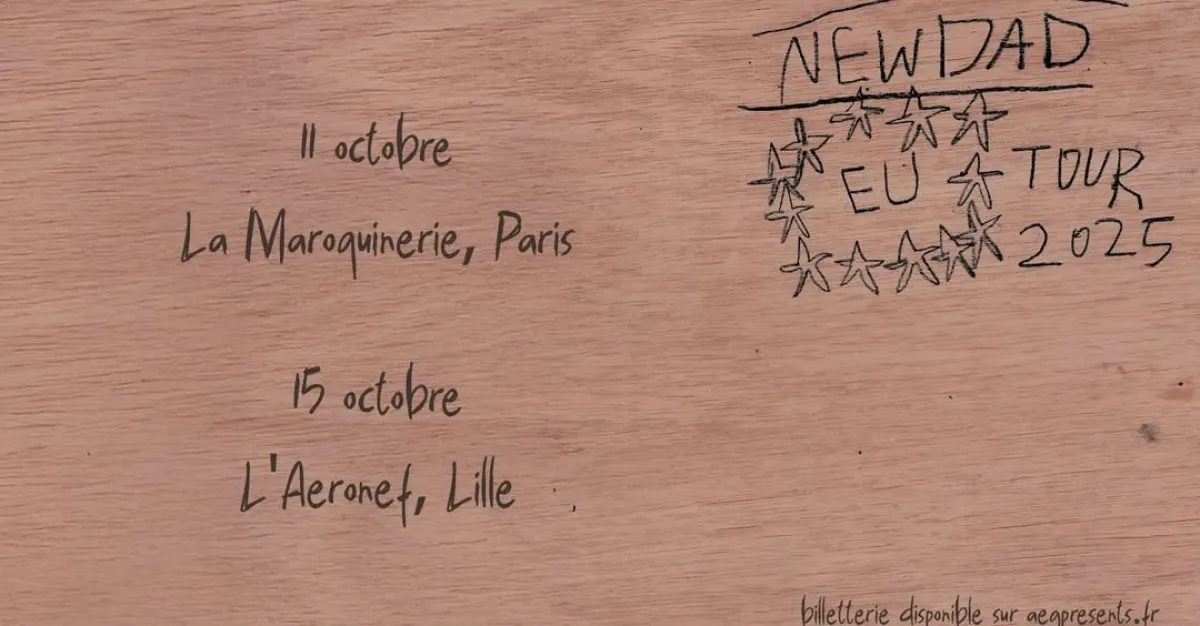 NEWDAD
EU TOUR
2025
11 octobre
La Maroquinerie, Paris
15 octobre
L'Aeronef, Lille
billetterie disponible sur aegpresents.fr